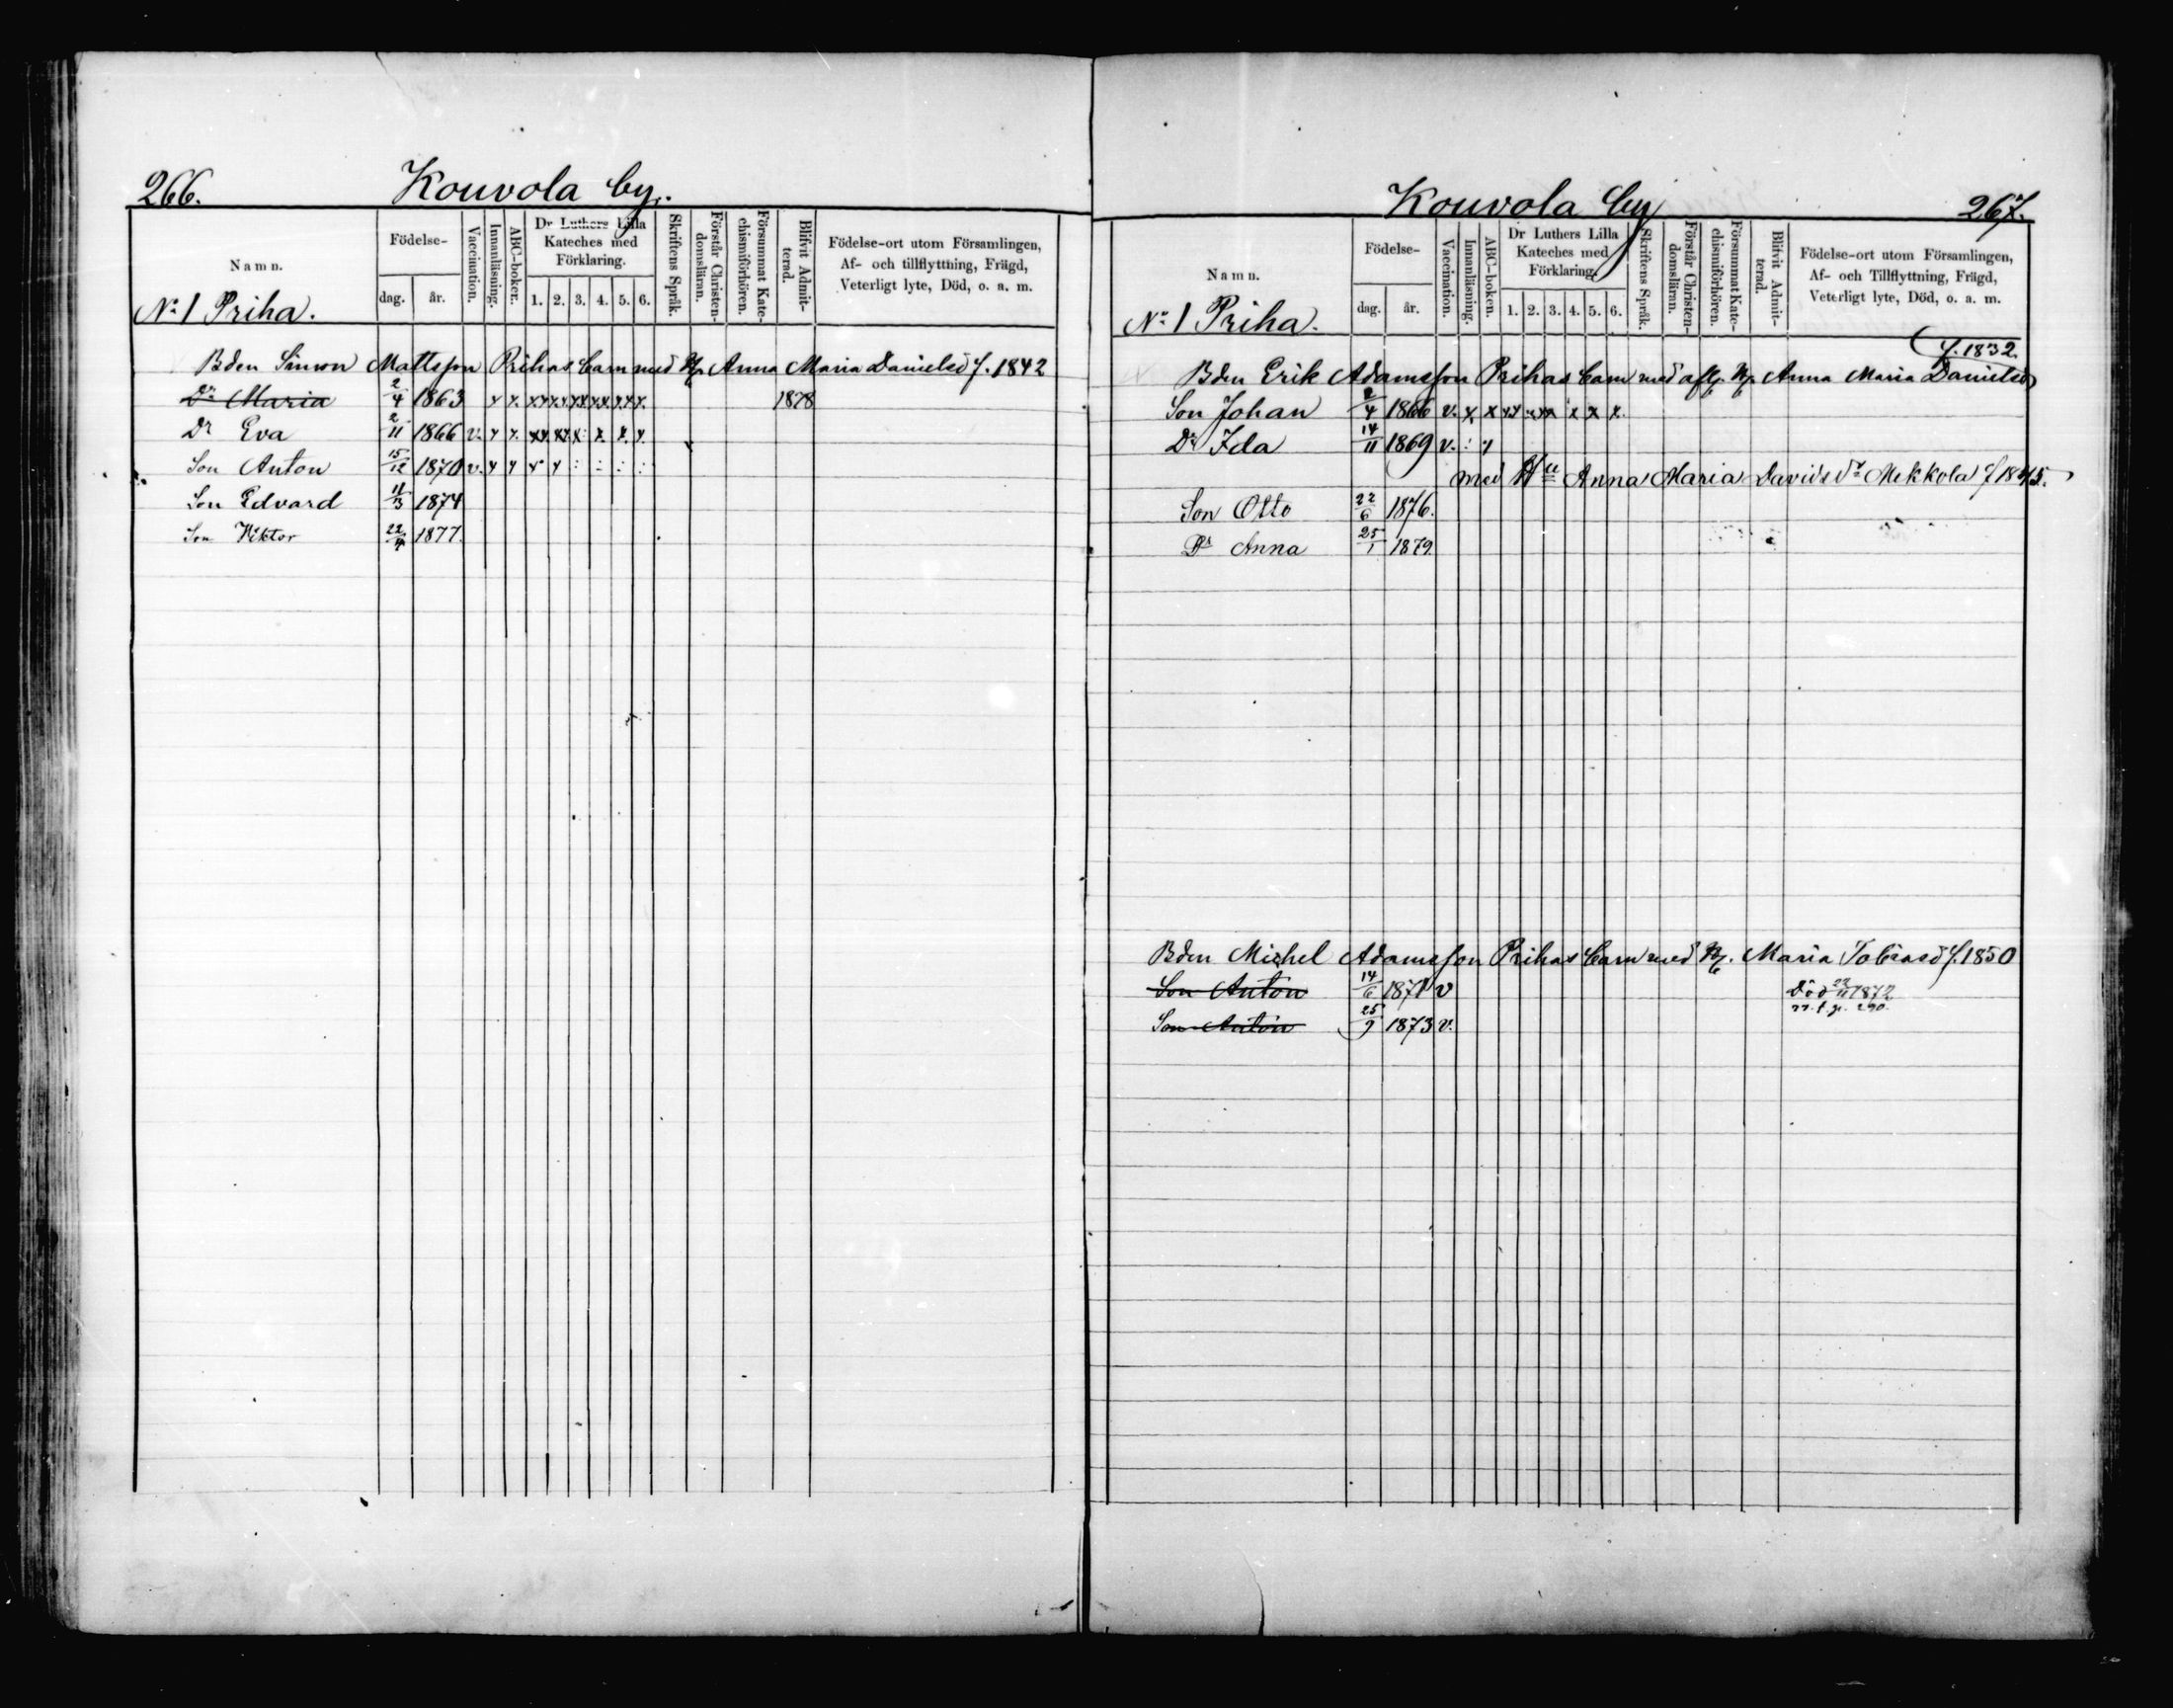 266. Kouvola by.
Namn. Födelse- dag. år. Vaccination. Innanläsning. ABC-boken. Dr Luthers Lilla Kateches med Förklaring. 1. 2. 3. 4. 5. 6. Skriftens Språk. Förstår Christendomsläran. Försummat Katechismiförhören. Blifvit Admitterad. Födelse-ort utom Församlingen, Af- och tillflyttning, Frägd, Veterligt lyte, Död, o. a. m.
No 1 Priha.
Bden Simon Mattsson Prihas barn med Hu Anna Maria Danielsd f. 1842
Dr Maria 2/4 1863 1878
Dr Eva 2/11 1866 v.
Son Anton 15/12 1870 v.
Son Edvard 11/3 1874
Son Viktor 22/4 1877.
Kouvola by 267.
Namn. Födelse- dag. år. Vaccination. Innanläsning. ABC-boken. Dr Luthers Lilla Kateches med Förklaring. 1. 2. 3. 4. 5. 6. Skriftens Språk. Förstår Christendomsläran. Försummat Katechismiförhören. Blifvit Admitterad. Födelse-ort utom Församlingen, Af- och Tillflyttning, Frägd, Veterligt lyte, Död, o. a. m.
No 1 Priha.
f. 1832.
Bden Erik Adamsson Prihas barn med afl. Hu Anna Maria Danielsd
Son Johan 2/4 1866 v. x x
Dr Ida 14/11 1869 v.
med Hu Anna Maria Davids dr Mekkola f 1845.
Son Otto 22/6 1876.
Dr Anna 25/1 1879.
Bden Michel Adamsson Prihas barn med Hu. Maria Tobiasd f. 1850
Son Anton 14/6 1871 v Död 22/11 1872
Son Anton 25/9 1873 v. 290.